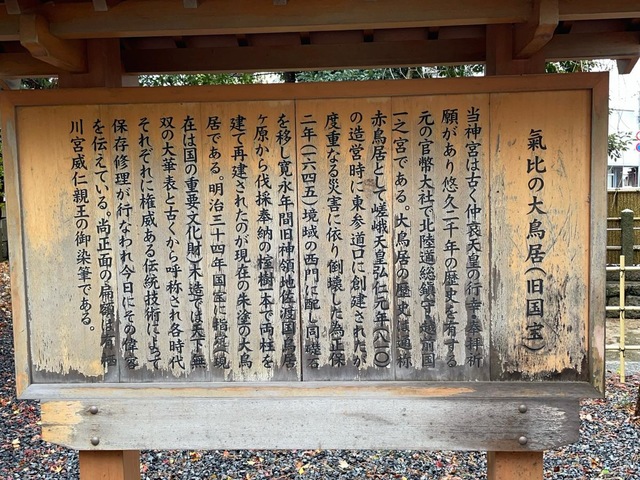 氣比の大鳥居(旧国宝)
当神宮は古く仲哀天皇の行幸参拝祈
願があり悠久二千年の歴史を有する
元の官幣大社で北陸道総鎮守越前国
一之宮である。大鳥居の歴史は通称
赤鳥居として嵯峨天皇弘仁元年(八一〇)
の造営時に東参道口に創建されたが
度重なる災害に依り倒壊した為正保
二年(一六四五)境域の西門に配し同礎石
を移し寛永年間旧神領地佐渡国鳥居
ヶ原から伐採奉納の榁樹一本で両柱を
建て再建されたのが現在の朱塗の大鳥
居である。明治三十四年国宝に指定現
在は国の重要(文化財)木造では天下無
双の大華表と古くから呼称され各時代
それぞれに権威ある伝統技術によって
保存修理が行なわれ今日にその偉容
を伝えている。尚正面の扁額は有栖
川宮威仁親王の御染筆である。